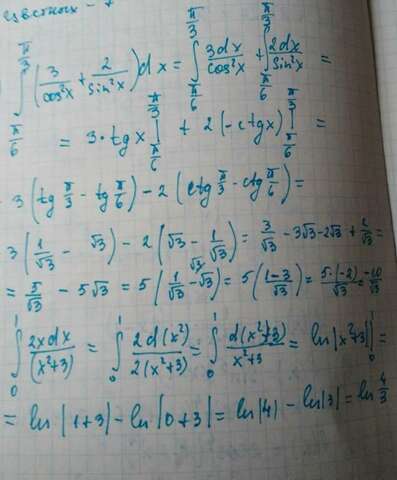 цветных - +
∫_{π/6}^{π/3} (3/cos²x + 2/sin²x) dx = ∫_{π/6}^{π/3} 3dx/cos²x + ∫_{π/6}^{π/3} 2dx/sin²x =
= 3·tgx |_{π/6}^{π/3} + 2(-ctgx) |_{π/6}^{π/3} =
3(tg π/3 - tg π/6) - 2(ctg π/3 - ctg π/6) =
3(1/√3 - √3) - 2(√3 - 1/√3) = 3/√3 - 3√3 - 2√3 + 2/√3 =
= 5/√3 - 5√3 = 5(1/√3 - √3) = 5((1-3)/√3) = 5·(-2)/√3 = -10/√3
∫_0^1 2xdx/(x²+3) = ∫_0^1 2d(x²)/2(x²+3) = ∫_0^1 d(x²+3)/x²+3 = ln|x²+3| |_0^1 =
= ln|1+3| - ln|0+3| = ln|4| - ln|3| = ln 4/3